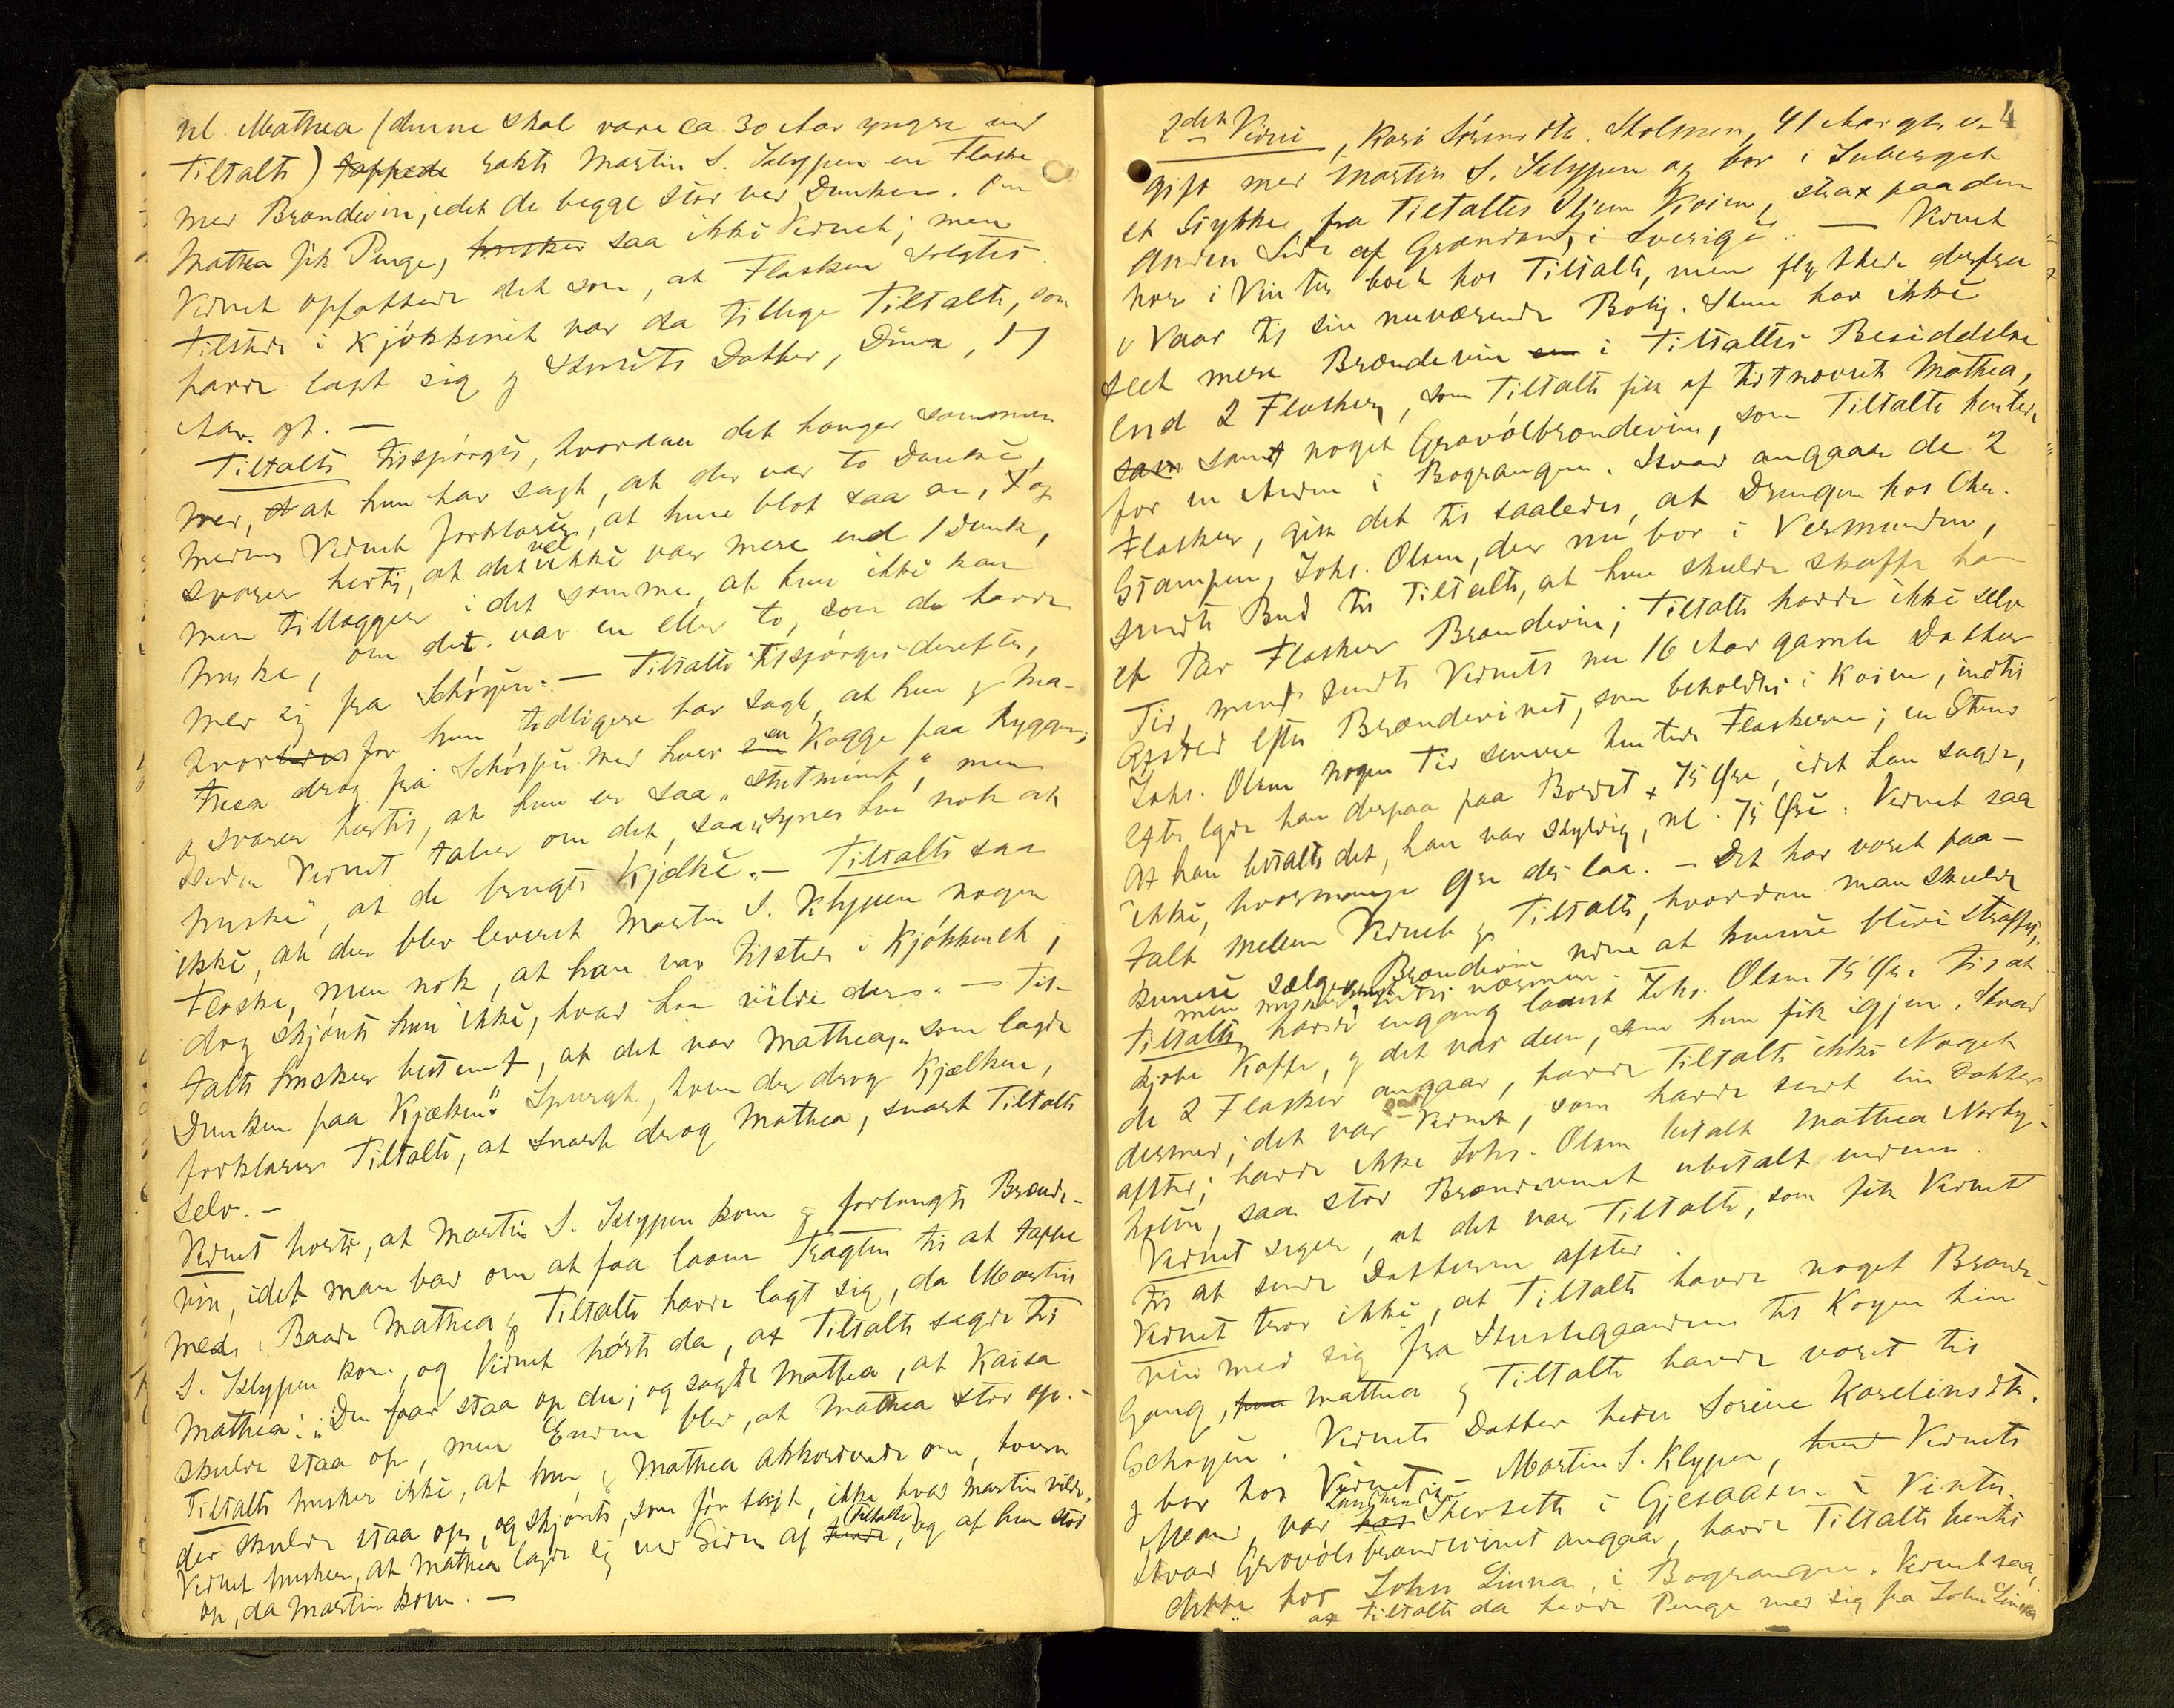 nl. Mathea (denne skal være ca. 30 Aar yngre end
Tiltalte) tappede rakte Martin S. Klypen en Flaske
med Brændevin, idet de begge stod ved Dunken. Om
Mathea fik Penge, husker saa ikke Vidnet; men
Vidnet opfattede det som, at Flasken solgtes.
Tilstede i Kjøkkenet var da tillige Tiltalte, som
havde lagt sig og Vidnets Datter, Dina, 17
Aar gl. —
Tiltalte tilspørges, hvordan det hænger sammen
med, at hun har sagt, at der var to Dunke,
medens Vidnet forklarer, at hun blot saa en, og
svarer hertil, at det vel ikke var mere end 1 Dunk,
men tillægger i det samme, at hun ikke kan
huske, om det var en eller to, som de havde
med sig fra Schøyen. — Tiltalte tilspørges derefter,
hvorfor hun tidligere har sagt, at hun og Ma-
thea drog fra Schøyen med hver sin en Kagge paa Ryggen;
og svarer hertil, at hun er saa "slutmindt", men
siden Vidnet taler om det, saa "synes hun nok at
huske", at de brugte Kjælke. — Tiltalte saa
ikke, at der blev leveret Martin S. Klypen nogen
Flaske, men nok, at han var tilstede i Kjøkkenet;
dog skjønte hun ikke, hvad han vilde der. — Til-
talte husker bestemt, at det var Mathea, "som lagde
Dunken paa Kjælken". Spurgt, hvem der drog Kjælken,
forklarer Tiltalte, at snart drog Mathea, snart Tiltalte
selv. —
Vidnet hørte, at Martin S. Klypen kom og forlangte Brænde-
vin, idet man bad om at faa laane Tragten til at tappe
med. Baade Mathea og Tiltalte havde lagt sig, da Martin
S. Klypen kom, og Vidnet hørte da, at Tiltalte sagde til
Mathea: "Du faar staa op du; og sagde Mathea, at Kaisa
skulde staa op, men Enden blev, at Mathea stod op. —
Tiltalte husker ikke, at hun og Mathea akkorderede om, hvem
der skulde staa op, og skjønte, som før sagt, ikke hvad Martin vilde.
Vidnet husker, at Mathea lagde sig ved Siden af hende (Tiltalte), og at hun stod
op, da Martin kom. —
4
2det Vidne, Kari Sørensdtr. Holmen, 41 Aar gl. er
gift med Martin S. Klypen og bor i
et Stykke fra Tiltaltes Hjem Koien, strax paa den
anden Side af Grændsen, i Sverige. — Vidnet
har i Vinter boet hos Tiltalte, men flyttede derfra
i Vaar til sin nuværende Bolig. Hun har ikke
seet mere Brændevin en i Tiltaltes Besiddelse
end 2 Flasker, som Tiltalte fik af tilnævnte Mathea,
som samt noget Gravølbrændevin, som Tiltalte hentede
for en Anden i Bograngen. Hvad angaar de 2
Flasker, gik det til saaledes, at Drengen hos Chr.
Stampen, Johs. Olsen, der nu bor i Vermunden,
sendte Bud til Tiltalte, at hun skulde skaffe ham
et Par Flasker Brændevin; Tiltalte havde ikke selv
Tid, men sendte Vidnets nu 16 Aar gamle Datter
afsted efter Brændevinet, som beholdtes i Koien, indtil
Johs. Olsen nogen Tid senere hentede Flaskerne; en Stund
efter lagde han derpaa paa Bordet 75 Øre, idet han sagde,
at han betalte det, han var skyldig, nl. 75 Øre. Vidnet saa
ikke, hvormange Øre der laa. — Det har været paa-
talt mellem Vidnet og Tiltalte, hvordan man skulde
kunne sælge Brændevin uden at kunne blive straffet,
men husker intet nærmere.
Tiltalte havde engang laant Johs. Olsen 75 Øre til at
kjøbe Kaffe, og det var dem, som hun fik igjen. Hvad
de 2 Flasker angaar, havde Tiltalte ikke Noget
dermed; det var Vidnet, som havde sendt sin Datter
afsted; havde ikke Johs. Olsen betalt Mathea Norby-
hølen, saa stod Brændevinet ubetalt endnu.
Vidnet siger, at det var Tiltalte, som fik Vidnet
til at sende Datteren afsted.
Vidnet tror ikke, at Tiltalte havde noget Brænde-
vin med sig fra Stushgaarden til Koyen hin
Gang, hun Mathea og Tiltalte havde været til
Schøyen. Vidnets Datter heder Sorine Karelinsdtr.
og bor hos Vidnet. — Martin S. Klypen, hend Vidnets
Mand, var hos Skersett i Gjesaasen i Vinter.
Hvad Gravølsbrændevinet angaar, havde Tiltalte hentet
dette hos John Linna, i Bograngen. Vidnet saa,
at Tiltalte da havde Penge med sig fra John Linna